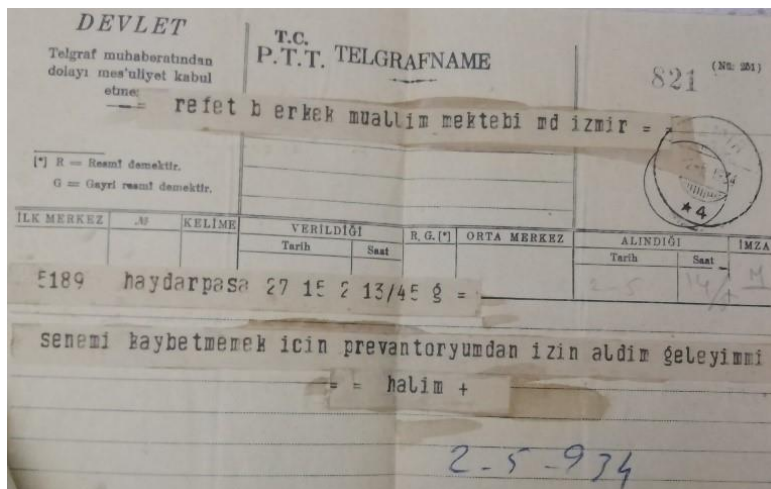 DEVLET
Telgraf muhaberatından
dolayı mes'uliyet kabul
etmez
T.C.
P.T.T. TELGRAFNAME
821
(No: 251)
= refet b erkek muallim mektebi md izmir =
[*] R = Resmî demektir.
G = Gayri resmî demektir.
4
İLK MERKEZ № KELİME VERİLDİĞİ R. G. [*] ORTA MERKEZ ALINDIĞI İMZA
Tarih Saat Tarih Saat
2-5 14/ M
5189 haydarpasa 27 15 2 13/45 g =
senemi kaybetmemek icin prevantoryumdan izin aldim geleyimmi
= = halim +
2-5-934